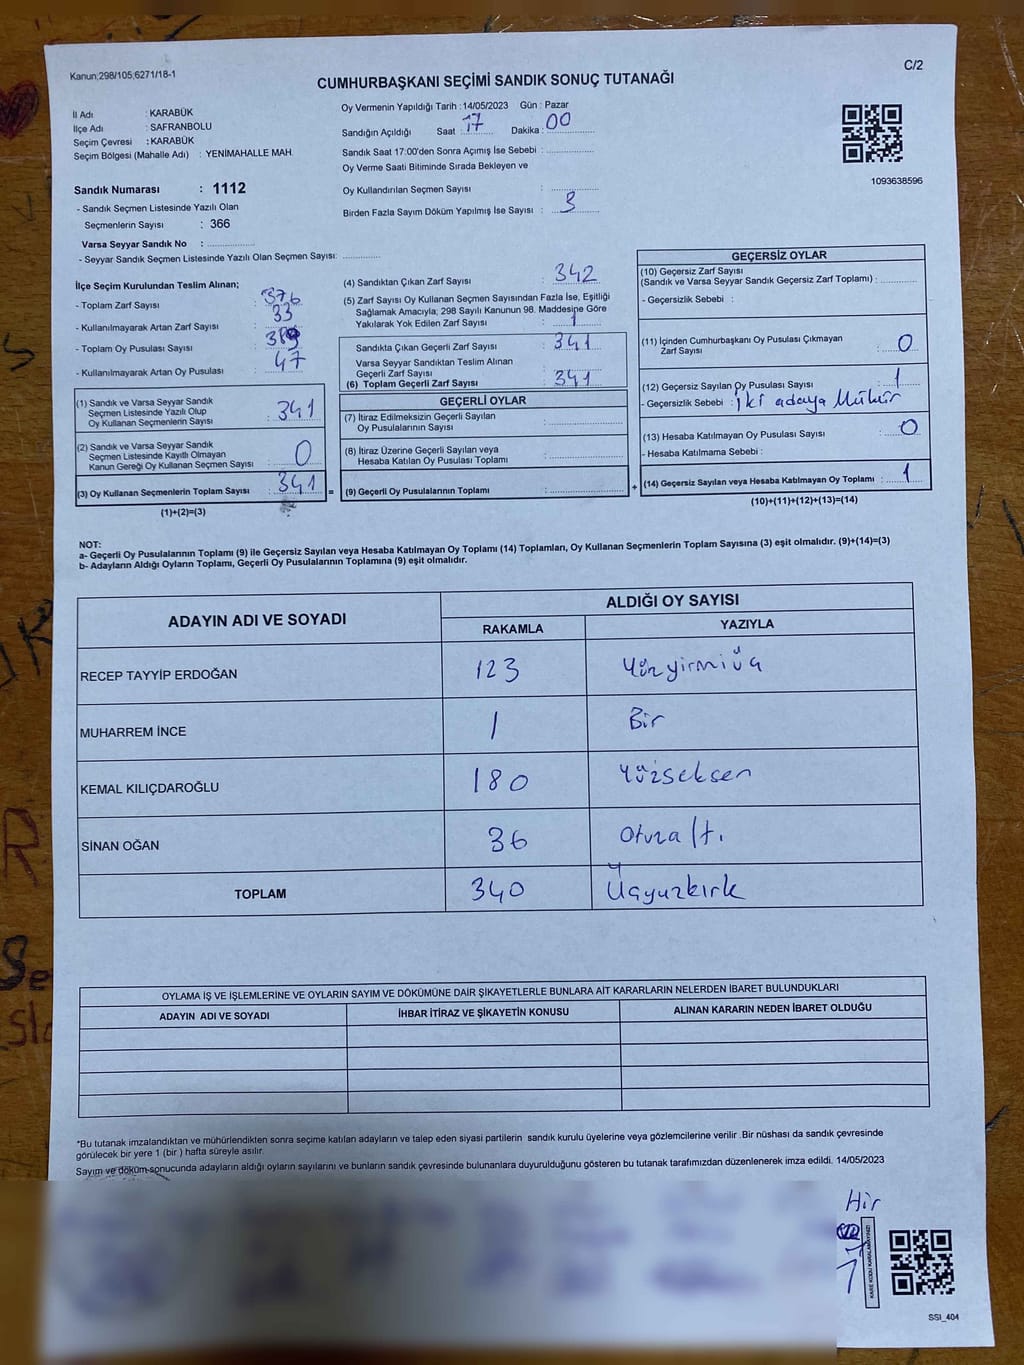 Kanun;298/105;6271/18-1
C/2
CUMHURBAŞKANI SEÇİMİ SANDIK SONUÇ TUTANAĞI
İl Adı : KARABÜK
İlçe Adı : SAFRANBOLU
Seçim Çevresi : KARABÜK
Seçim Bölgesi (Mahalle Adı) : YENİMAHALLE MAH.
Sandık Numarası : 1112
- Sandık Seçmen Listesinde Yazılı Olan
Seçmenlerin Sayısı : 366
Varsa Seyyar Sandık No :
- Seyyar Sandık Seçmen Listesinde Yazılı Olan Seçmen Sayısı:
Oy Vermenin Yapıldığı Tarih : 14/05/2023 Gün : Pazar
Sandığın Açıldığı Saat : 17 Dakika : 00
Sandık Saat 17:00'den Sonra Açımış İse Sebebi :
Oy Verme Saati Bitiminde Sırada Bekleyen ve
Oy Kullandırılan Seçmen Sayısı :
Birden Fazla Sayım Döküm Yapılmış İse Sayısı : 3
1093638596
İlçe Seçim Kurulundan Teslim Alınan;
- Toplam Zarf Sayısı : 376
- Kullanılmayarak Artan Zarf Sayısı : 33
- Toplam Oy Pusulası Sayısı :
- Kullanılmayarak Artan Oy Pusulası : 47
(1) Sandık ve Varsa Seyyar Sandık
Seçmen Listesinde Yazılı Olup
Oy Kullanan Seçmenlerin Sayısı : 341
(2) Sandık ve Varsa Seyyar Sandık
Seçmen Listesinde Kayıtlı Olmayan
Kanun Gereği Oy Kullanan Seçmen Sayısı : 0
(3) Oy Kullanan Seçmenlerin Toplam Sayısı : 341 =
(1)+(2)=(3)
(4) Sandıktan Çıkan Zarf Sayısı : 342
(5) Zarf Sayısı Oy Kullanan Seçmen Sayısından Fazla İse, Eşitliği
Sağlamak Amacıyla; 298 Sayılı Kanunun 98. Maddesine Göre
Yakılarak Yok Edilen Zarf Sayısı : 1
Sandıkta Çıkan Geçerli Zarf Sayısı : 341
Varsa Seyyar Sandıktan Teslim Alınan
Geçerli Zarf Sayısı :
(6) Toplam Geçerli Zarf Sayısı : 341
GEÇERLİ OYLAR
(7) İtiraz Edilmeksizin Geçerli Sayılan
Oy Pusulalarının Sayısı :
(8) İtiraz Üzerine Geçerli Sayılan veya
Hesaba Katılan Oy Pusulası Toplamı :
(9) Geçerli Oy Pusulalarının Toplamı : +
GEÇERSİZ OYLAR
(10) Geçersiz Zarf Sayısı
(Sandık ve Varsa Seyyar Sandık Geçersiz Zarf Toplamı) :
- Geçersizlik Sebebi :
(11) İçinden Cumhurbaşkanı Oy Pusulası Çıkmayan
Zarf Sayısı : 0
(12) Geçersiz Sayılan Oy Pusulası Sayısı : 1
- Geçersizlik Sebebi : İki adaya Mühür
(13) Hesaba Katılmayan Oy Pusulası Sayısı : 0
- Hesaba Katılmama Sebebi :
(14) Geçersiz Sayılan veya Hesaba Katılmayan Oy Toplamı : 1
(10)+(11)+(12)+(13)=(14)
NOT:
a- Geçerli Oy Pusulalarının Toplamı (9) ile Geçersiz Sayılan veya Hesaba Katılmayan Oy Toplamı (14) Toplamları, Oy Kullanan Seçmenlerin Toplam Sayısına (3) eşit olmalıdır. (9)+(14)=(3)
b- Adayların Aldığı Oyların Toplamı, Geçerli Oy Pusulalarının Toplamına (9) eşit olmalıdır.
ADAYIN ADI VE SOYADI ALDIĞI OY SAYISI
RAKAMLA YAZIYLA
RECEP TAYYİP ERDOĞAN 123 Yüzyirmiüç
MUHARREM İNCE 1 Bir
KEMAL KILIÇDAROĞLU 180 Yüzseksen
SİNAN OĞAN 36 Otuzaltı
TOPLAM 340 Üçyüzkırk
OYLAMA İŞ VE İŞLEMLERİNE VE OYLARIN SAYIM VE DÖKÜMÜNE DAİR ŞİKAYETLERLE BUNLARA AİT KARARLARIN NELERDEN İBARET BULUNDUKLARI
ADAYIN ADI VE SOYADI İHBAR İTİRAZ VE ŞİKAYETİN KONUSU ALINAN KARARIN NEDEN İBARET OLDUĞU
*Bu tutanak imzalandıktan ve mühürlendikten sonra seçime katılan adayların ve talep eden siyasi partilerin sandık kurulu üyelerine veya gözlemcilerine verilir. Bir nüshası da sandık çevresinde
görülecek bir yere 1 (bir ) hafta süreyle asılır.
Sayım ve döküm sonucunda adayların aldığı oyların sayılarını ve bunların sandık çevresinde bulunanlara duyurulduğunu gösteren bu tutanak tarafımızdan düzenlenerek imza edildi. 14/05/2023
KARE KODU KARALAMAYINIZ!
SSI_404